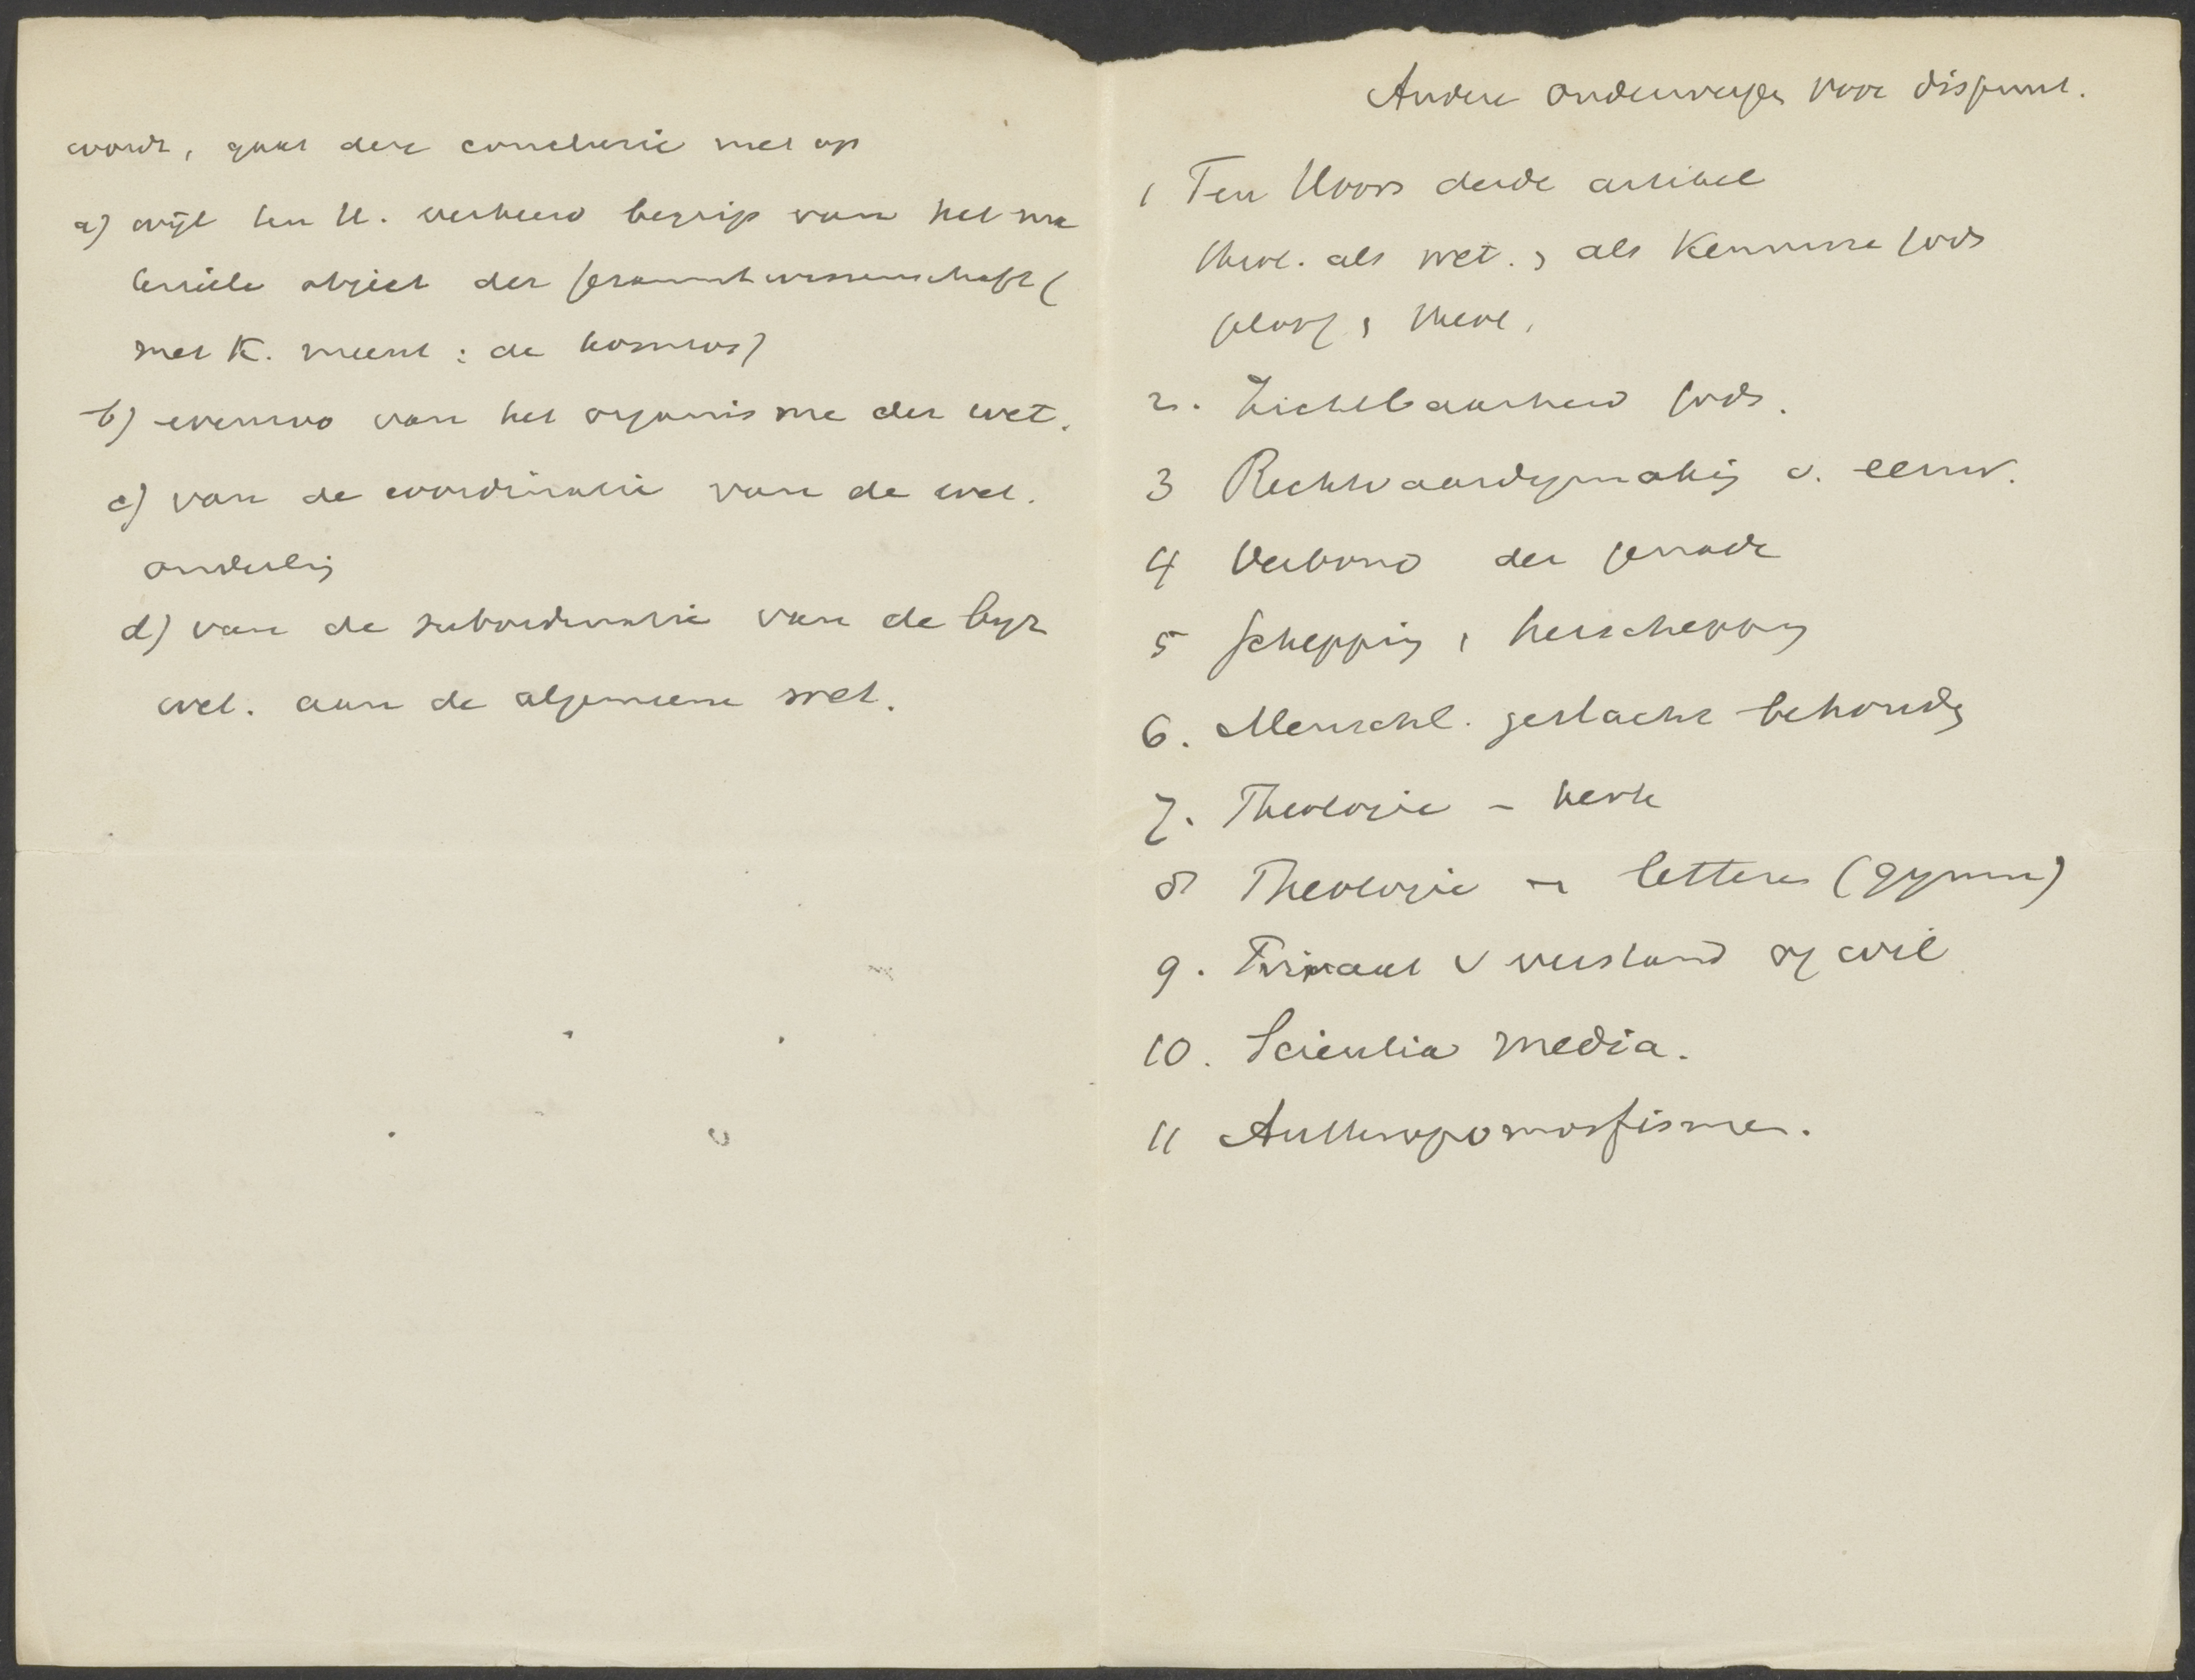 wordt, gaat deze conclusie niet op
a) wijl ten H. verkeerd begrip van het ma
teriële object der Gesammtwissenschaft (
met K. meent: de kosmos)
b) evenzoo van het organisme der wet.
c) van de coordinatie van de wet.
onderling
d) van de subordinatie van de byz
wet. aan de algemeene wet.
Andere onderwerpen voor dispuut.
1 Ten Hoors derde artikel
theol. als wet. , als Kennisse Gods
geloof , theol.
2. Zichtbaarheid Gods.
3 Rechtvaardigmaking v. eeuw.
4 Verbond der genade
5 Schepping , herschepping
6. Menschl. geslacht behouden
7. Theologie – kerk
8 Theologie – letteren (gymn)
9. Primaat v verstand of wil
10. Scientia media.
11 Anthropomorfisme.